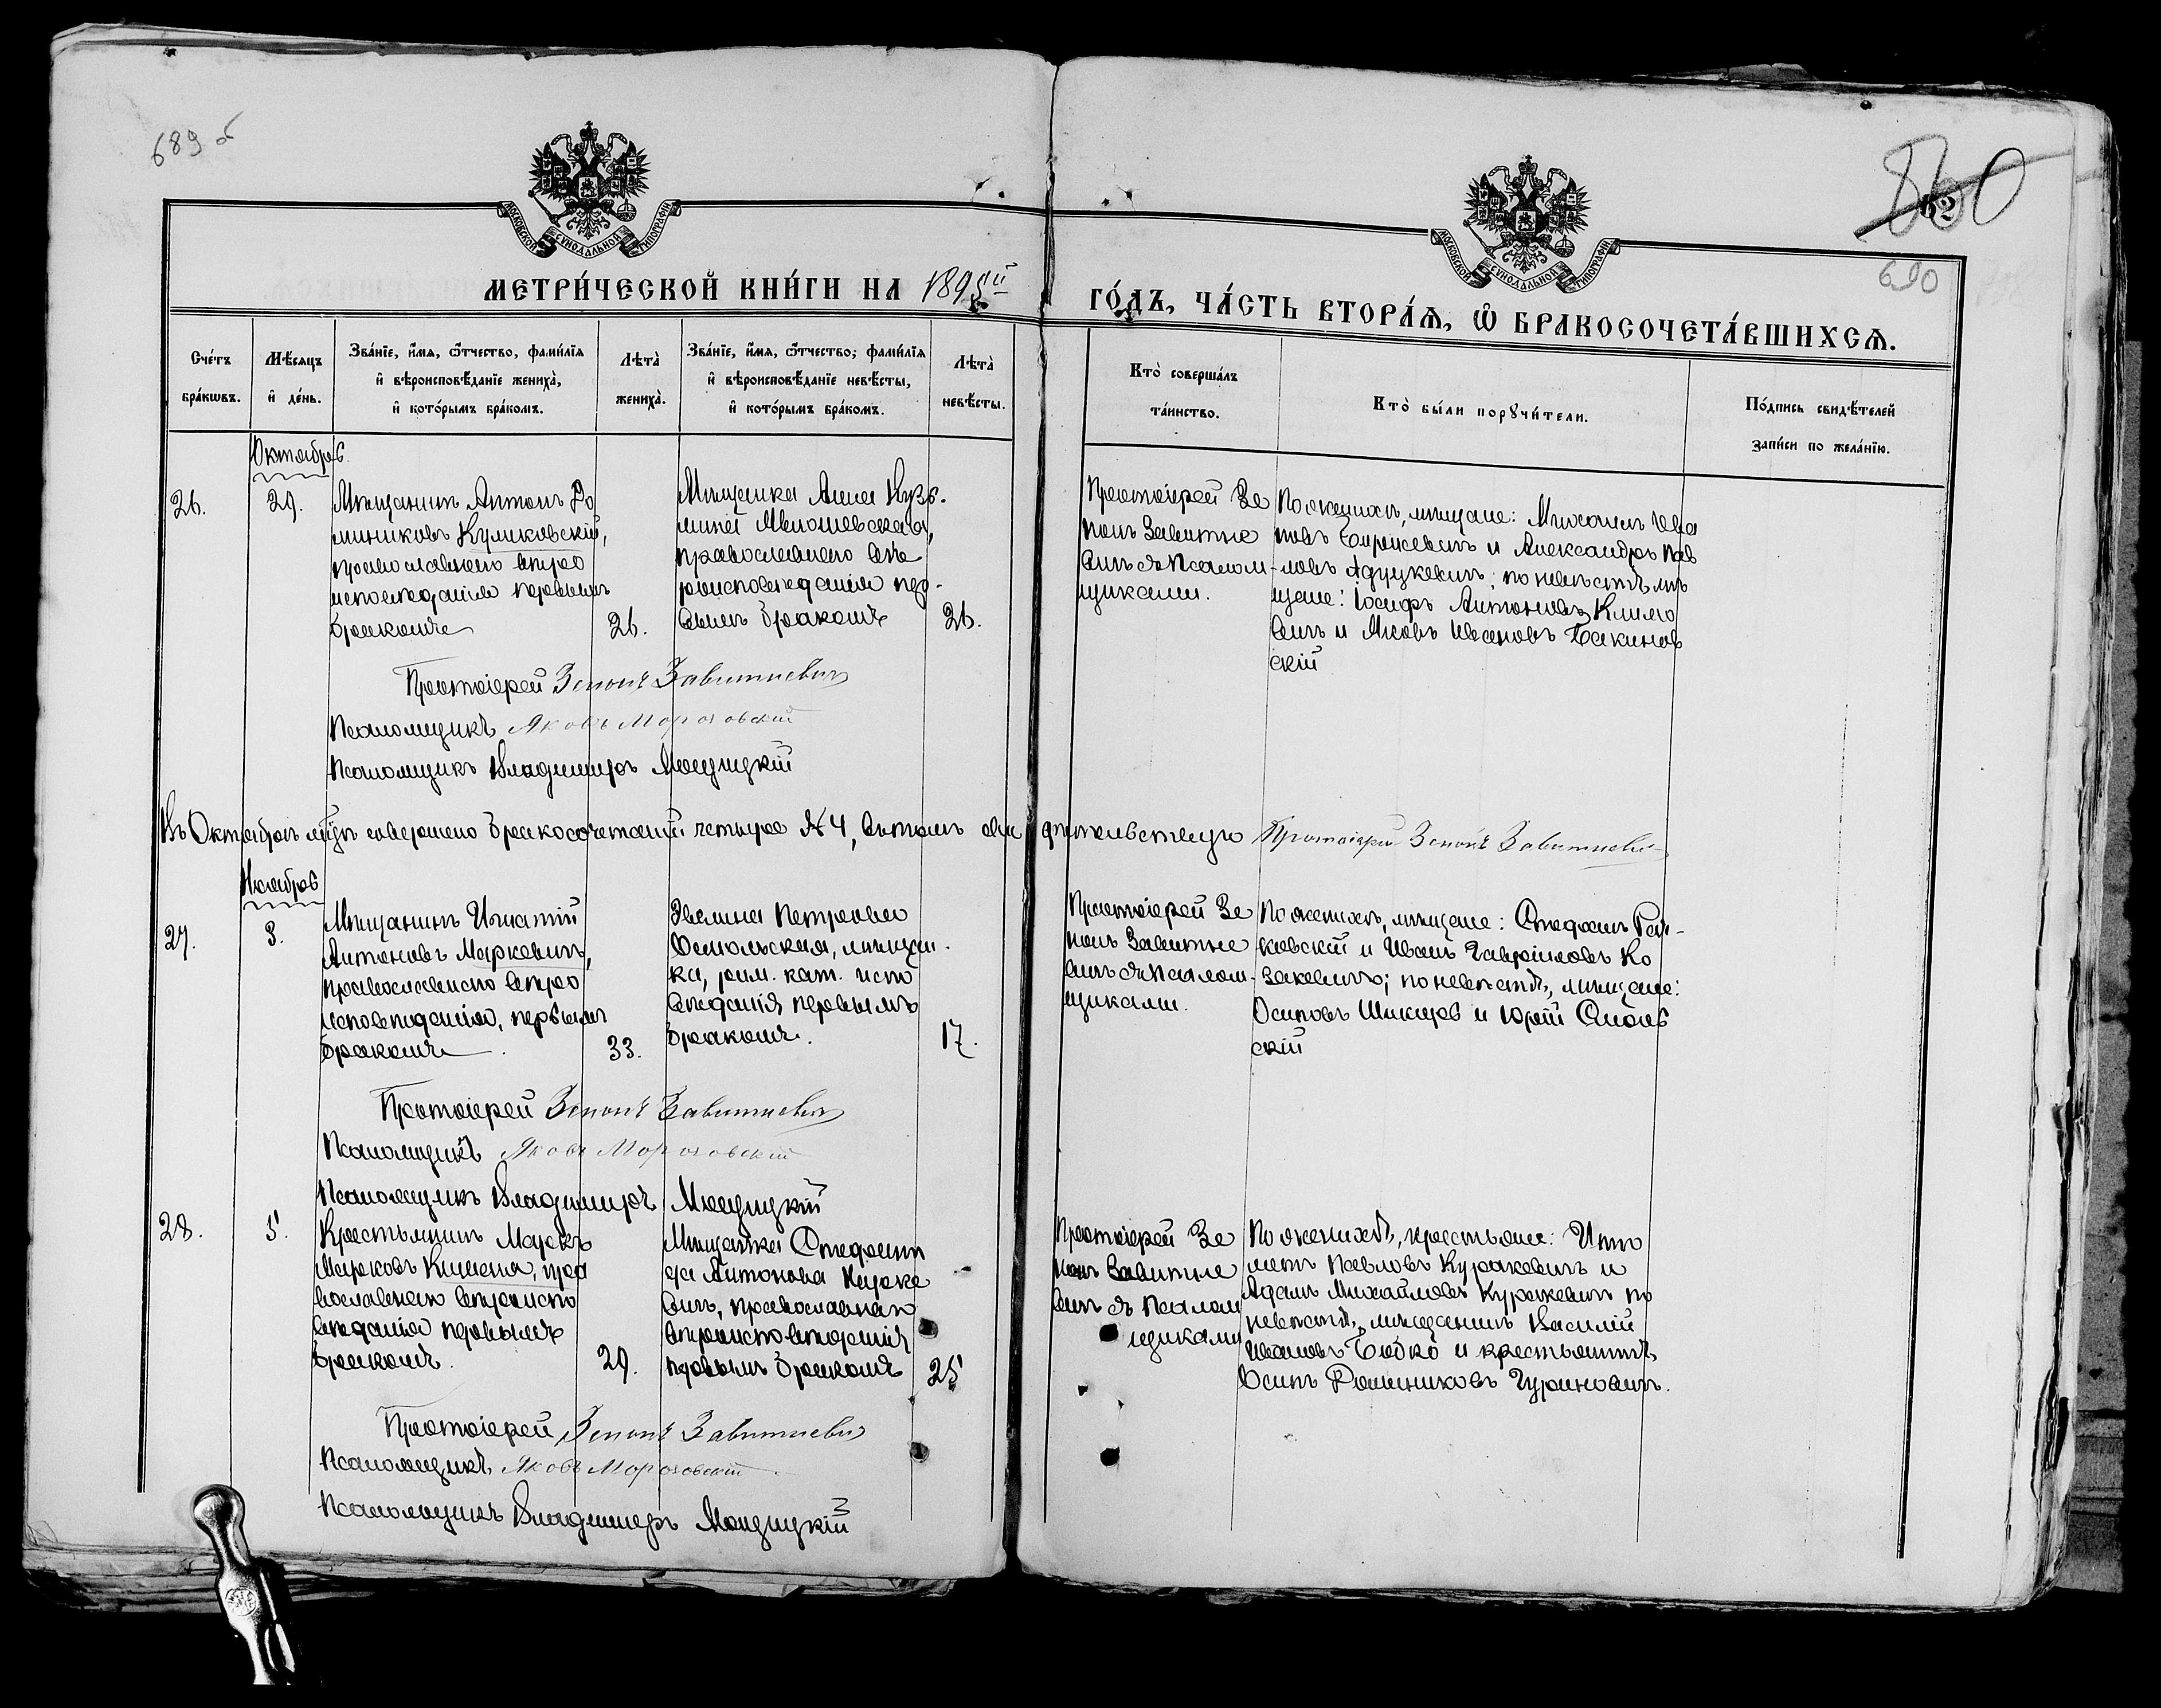 689 об
860
62
690
МОСКОВСКОЙ СѴНОДАЛЬНОЙ ТИПОГРАФІИ
МОСКОВСКОЙ СѴНОДАЛЬНОЙ ТИПОГРАФІИ
МЕТРИ́ЧЕСКОЙ КНИ́ГИ НА 1895й ГО́ДЪ, ЧА́СТЬ ВТОРА́Ѧ, Ѽ БРАКОСОЧЕТА́ВШИХСѦ.
Сче́тъ бра́кѡвъ.
Мѣ́сѧцъ и҆ де́нь.
Зва́нїе, и҆́мѧ, ѻ҆́тчество, фами́лїѧ и҆ вѣроисповѣ́данїе жениха̀, и҆ кото́рымъ бра́комъ.
Лѣта̀ жениха̀.
Зва́нїе, и҆́мѧ, ѻ҆́тчество, фами́лїѧ и҆ вѣроисповѣ́данїе невѣ́сты, и҆ кото́рымъ бра́комъ.
Лѣта̀ невѣ́сты.
Кто̀ соверша́лъ та́инство.
Кто̀ бы́ли порꙋчи́тели.
По́дпись свидѣ́телей за́писи по жела́нїю.
Октябрь
26.
29.
Мѣщанинъ Антонъ До
миниковъ Куликовскій,
православнаго вѣро
исповѣданія первымъ
бракомъ
26.
Мѣщанка Анна Кузь-
мина
православнаго вѣ
роисповѣданія пер-
вымъ бракомъ
26.
Протоіерей Зе
нонъ Завитне
вичъ съ Псалом-
щиками.
По женихѣ, мѣщане: Михаилъ Ива
новъ и Александръ Пав
ловъ Адуцкевичъ; по невѣстѣ мѣ
щане: Іосифъ Антоновъ Климо
вичъ и Яковъ Ивановъ Бакинов
скій
Протоіерей Зенонъ Завитневичъ
Псаломщикъ Яковъ Мороховскій
Псаломщикъ Владимиръ
Въ Октябрѣ мцѣ совершено бракосочетаній четыре № 4, въ томъ сви дѣтельствую Протоіерей Зенонъ Завитневичъ
Ноябрь
27.
3.
Мѣщанинъ Игнатій
Антоновъ Маркевичъ,
православнаго вѣро
исповѣданія, первымъ
бракомъ
33.
Эвелина Петрова
мѣщан-
ка, рим. кат. испо
вѣданія первымъ
бракомъ.
17.
Протоіерей Зе
нонъ Завитне
вичъ съ Псалом-
щиками.
По женихѣ, мѣщане: Стефанъ Рай-
ковскій и Иванъ Гавріиловъ Ко
закевичъ; по невѣстѣ, мѣщане:
Осиповъ и Юрій
скій
Протоіерей Зенонъ Завитневичъ
Псаломщикъ Яковъ Мороховскій
Псаломщикъ Владимиръ
28.
5.
Крестьянинъ Марко
Марковъ пра
вославнаго вѣроиспо
вѣданія первымъ
бракомъ.
29.
Мѣщанка Стефани
да Антонова Марке
вичъ, православнаго
вѣроисповѣданія
первымъ бракомъ
25
Протоіерей Зе
нонъ Завитне
вичъ съ Псалом
щиками
По женихѣ, крестьяне: Игна
Павловъ Куракевичъ и
Адамъ Михайловъ Куракевичъ по
невѣстѣ, мѣщанинъ Василій
Ивановъ Бойко и крестьянинъ
Осипъ Доминиковъ Гуриновичъ.
Протоіерей Зенонъ Завитневичъ
Псаломщикъ Яковъ Мороховскій
Псаломщикъ Владимиръ